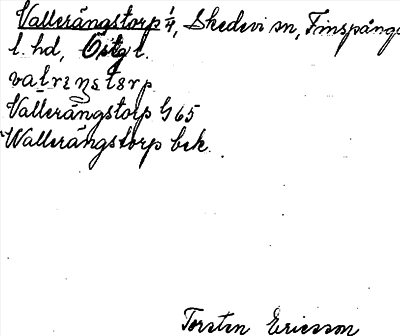 Vallerängstorp 1/4, Skedevi sn, Finspånga
l. hd, Östg l.
Vallerängstorp G 65
Wallerängstorp bek.
Torsten Ericsson